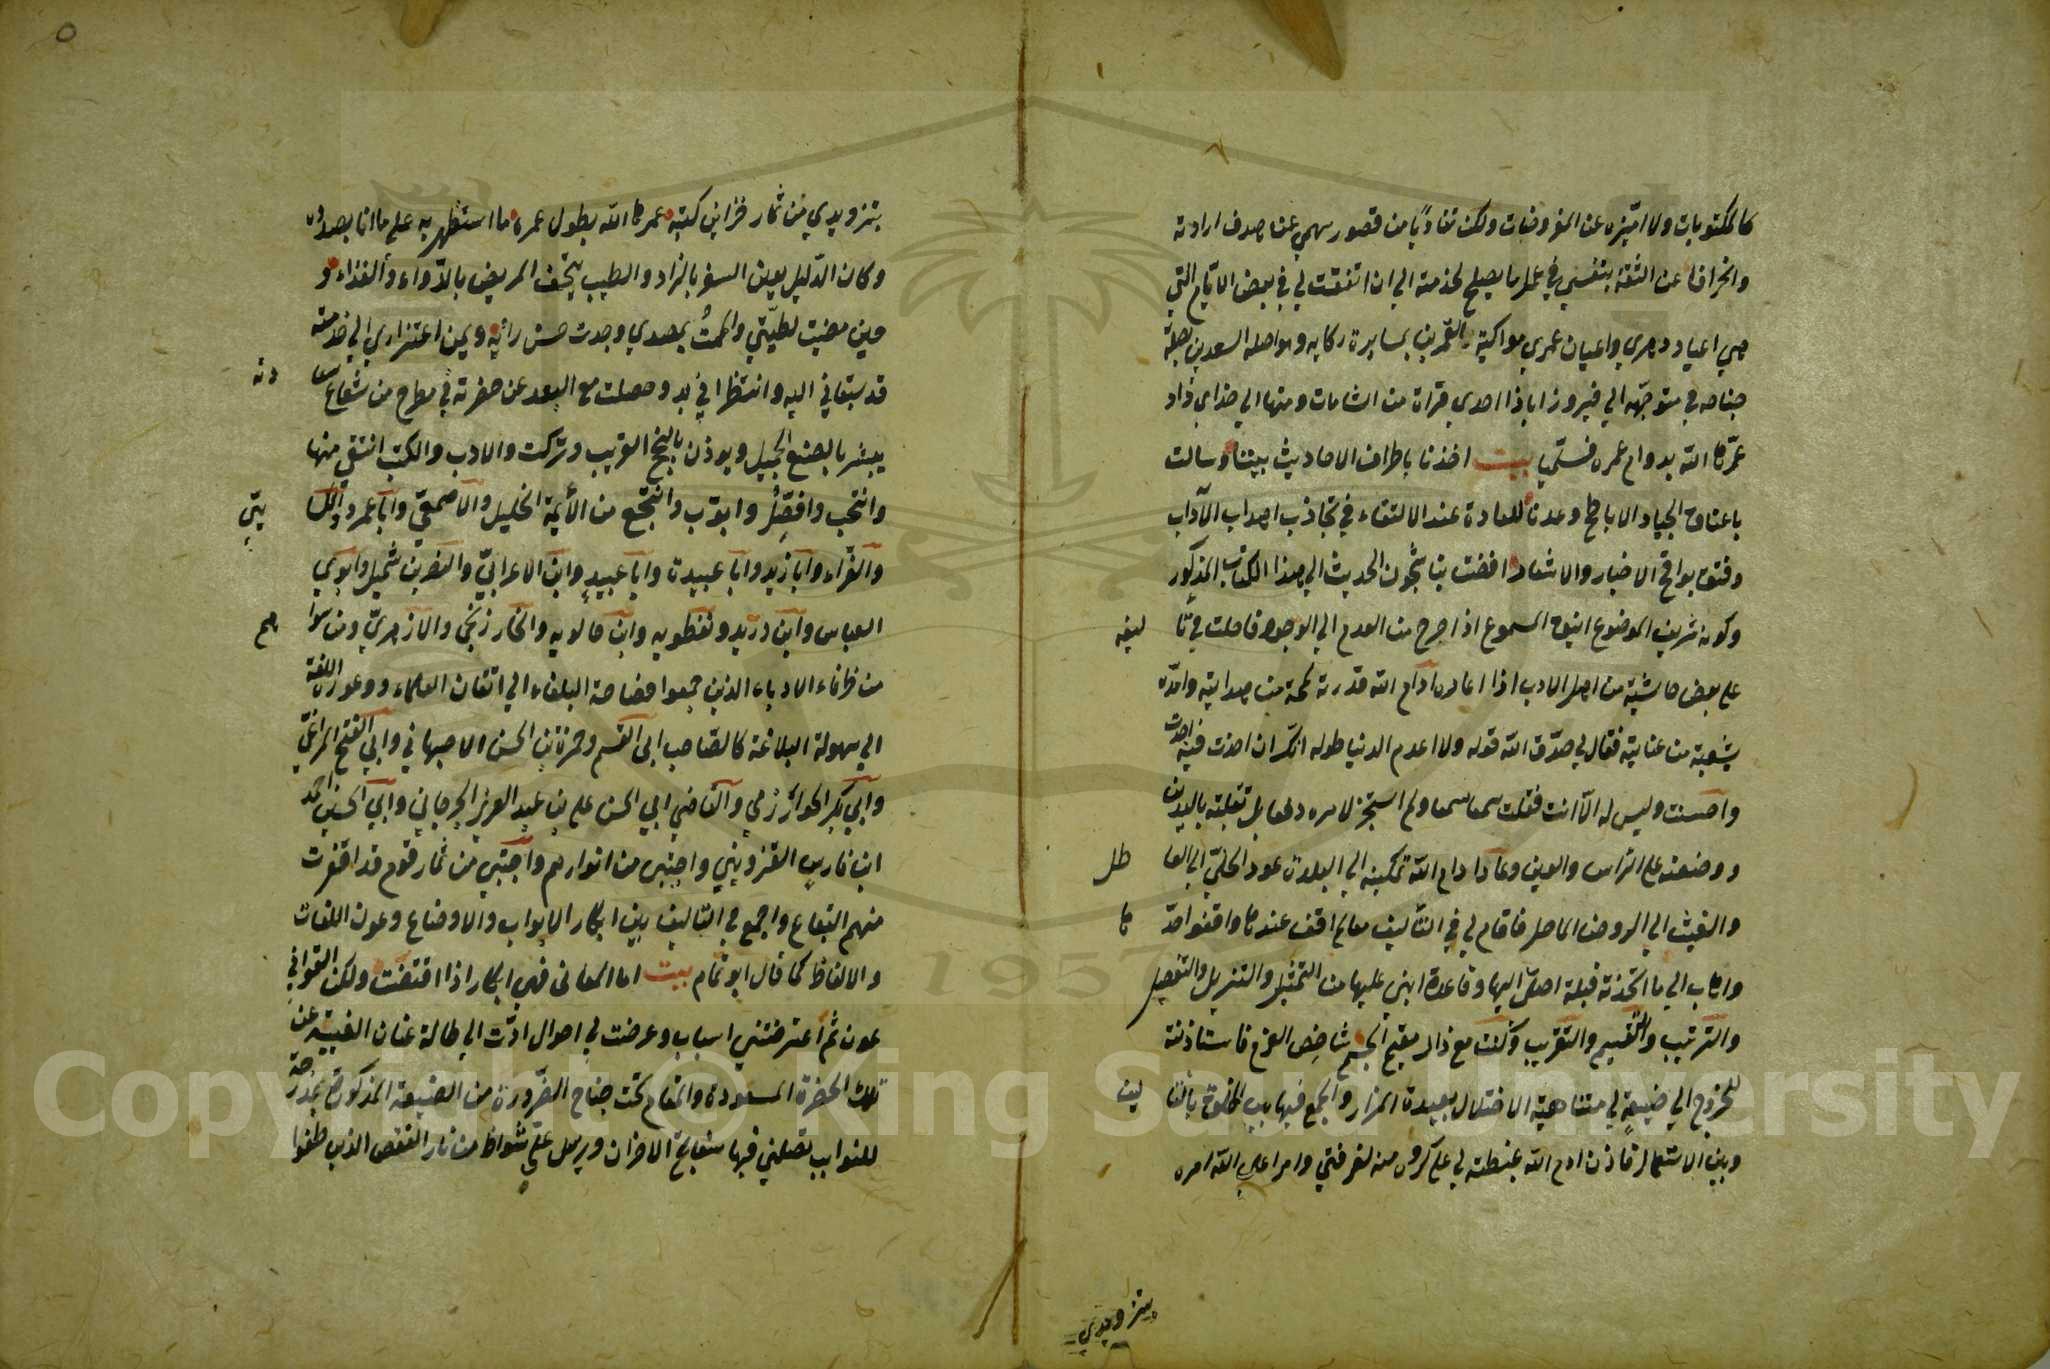 كالمكتوبات ولا اميزه عن المفروضات ولكن تفاديا من قصور سهمي عن هدف ارادته
وانحرافا عن الثقة بنفسي في عمل ما يصلح لخدمته الي ان اتفقت لي في بعض الايام التي
هي اعياد دهري واعيان عمري مواكبة القمرين بمسايرة ركابه ومواصلة السعدين بصلة
جنابه في متوجهه الي فيروزاباذ احدي قراه من الشامات ومنها الي خداي داد
عمرها الله بدوام عمره فستمي بيت اخذنا باطراف الاحاديث بيننا وسالت
باعناق الجياد الاباطح وعدنا للعادة عند الالتقاء في تجاذب اهداب الآداب
وفتق نوافج الاخبار والاشعار افضت بنا شجون الحديث الي هذا الكتاب المذكور
وكونه شريف الموضوع انيق المسموع اذا خرج من العدم الي الوجود فاحلت في تا ليفه
علي بعض حاشيته من اهل الادب اذا اعاره ادام الله قدرته لمحة من هدايته وامده
بشعبة من عنايته فقال لي صدق الله قوله ولا اعدم الدنيا طوله انك ان اخذت فيه اجدت
واحسنت وليس له الا انت فقلت سمعا سمعا ولم استجز لامره دفعا بل تلقيته باليدين
ووضعته علي الراس والعين وعاد ادام الله تمكينه الي البلدة عود الحلي الي العا طل
والغيث الي الروض الماحل فاقام لي في التأليف معالم اقف عندها واقفو احد ها
واهاب الي ما اتخذته قبلة اصلي اليها وقاعدة ابني عليها من التمثيل والتنزيل والتفصيل
والترتيب والتقسيم والتقريب وكنت مع ذاك مقيم الجسم شاخص العزم فاستاذنته
للخروج الي ضيعة لي متناهية الاختلال بعيدة المزار والجمع فيها بين الخلوة بالتا ليف
وبين الاستعمار فاذن ادام الله غبطته لي علي كره منه لفرقتي وامر اعلي الله امره
بتزويدي
٥
بتزويدي من ثمار خزاين كتبه عمرها الله بطول عمره ما استظهر به علي ما انا بصدده
وكان كالدليل يعين السفر بالزاد والطبيب يتحف المريض بالدواء والغذاء و
حين مضيت لطيتي والممت بمقصدي وجدت حسن رأيه ويمن اعتزاري الي خدمته
قد سبقاني اليه وانتظراني به وحصلت مع البعد عن حضرته في مطرح من شعاع سعا دته
يبشر بالصنع الجميل ويؤذن بالنجح القريب وتركت والادب والكتب انتقي منها
وانتخب وافصل وابوب وانتجع من الأئمة الخليل والاصمعي وابا عمرو والكسا ئي
والفراء وابا زيد وابا عبيدة وابا عبيد وابن الاعرابي والنضر بن شميل وابوي
العباس وابن دريد ونفطويه وابن خالويه والخارزنجي والازهري ومن سوا هم
من ظرفاء الادباء الذين جمعوا فصاحة البلغاء الي اتقان العلماء ووعورة اللغة
الي سهولة البلاغة كالصاحب ابي القسم وحمزة بن الحسن الاصبهاني وابي الفتح المراغي
وابي بكر الخوارزمي والقاضي ابي الحسن علي بن عبد العزيز الجرجاني وابي الحسين احمد
ابن فارس القزويني واجتني من انوارهم واجتبي من ثمار قوم قد اقفرت
منهم البقاع واجمع في التاليف بين ابكار الابواب والاوضاع وعون اللغات
والالفاظ كما قال ابو تمام بيت اما المعاني فهي ابكار اذا افتضت ولكن القوافي
عون ثم اعترضتني اسباب وعرضت لي احوال ادت الي اطالة عنان الغيبة عن
تلك الحضرة المسعودة والمقام تحت جناح الضرورة من الضيعة المذكورة بمدرجة
للنوايب تصكني فيها سفاتج الاحزان ويرسل علي شواظ من نار القفص الذين طغوا